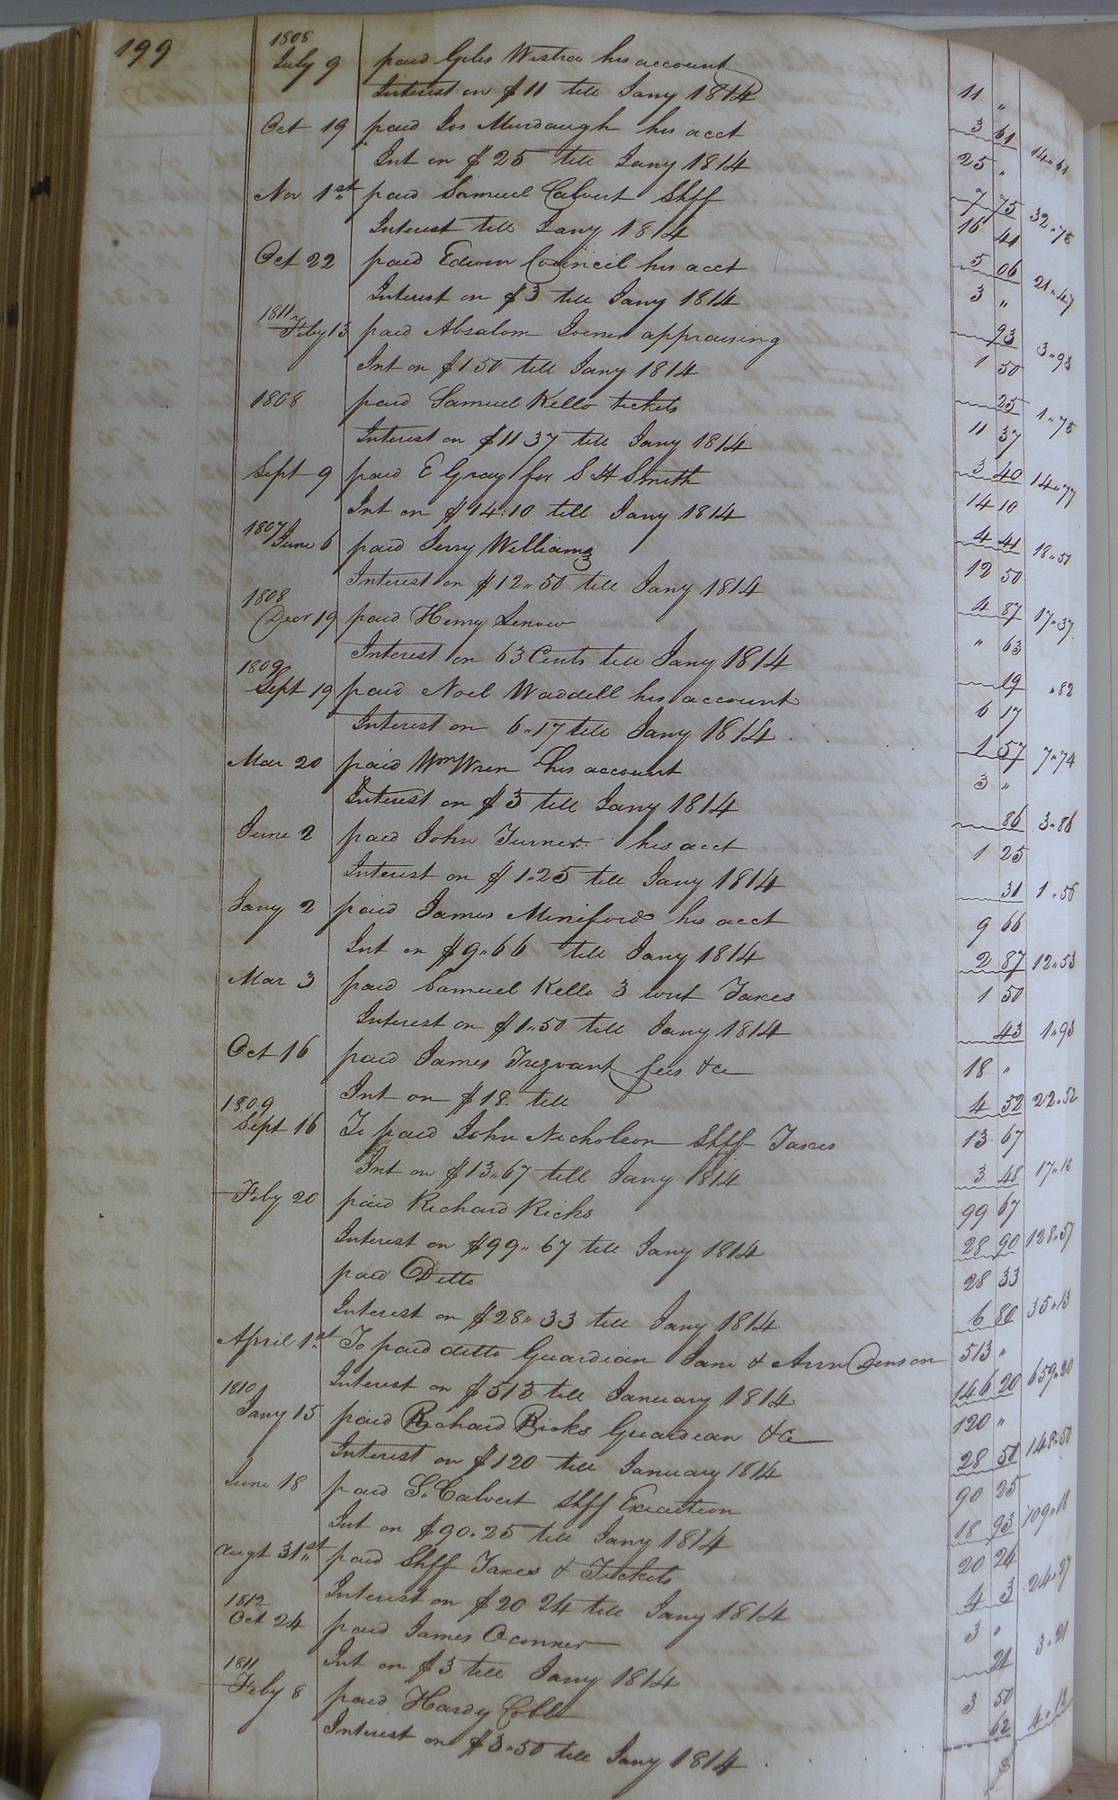 199
1808
July 9 paid Giles Westra his account 11 "
Interest on $11 till Jany 1814 3 61 14"61
Oct 19 paid Jos Murdaugh his acct 25 "
Int on $25 till Jany 1814 7 75 32"75
Nov 1st paid Samuel Calvert Shff 16 41
Interest till Jany 1814 5 06 21"47
Oct 22 paid Edwin Council his acct 3 "
Interest on $3 till Jany 1814 93 3"93
1811
Feby 13 paid Absalom Joiner appraising 1 50
Int on $1 50 till Jany 1814 25 1"75
1808 paid Samuel Kello tickets 11 37
Interest on $11 37 till Jany 1814 3 40 14"77
Sept 9 paid E Gray for S H Smith 14 10
Int on $14.10 till Jany 1814 4 41 18"51
1807
June 6 paid Jerry Williams 12 50
Interest on $12"50 till Jany 1814 4 87 17"37
1808
Decr 19 paid Henry " 63
Interest on 63 Cents till Jany 1814 19 "82
1809
Sept 19 paid Noel Waddell his account 6 17
Interest on 6"17 till Jany 1814 1 57 7"74
Mar 20 paid Wm Wren his account 3 "
Interest on $3 till Jany 1814 86 3"86
June 2 paid John Turner his acct 1 25
Interest on $1"25 till Jany 1814 31 1"56
Jany 2 paid James Miniford his acct 9 66
Int on $9"66 till Jany 1814 2 87 12"53
Mar 3 paid Samuel Kello 3 Taxes 1 50
Interest on $1"50 till Jany 1814 43 1"93
Oct 16 paid James Trezvant fees &c 18 "
Int on $18 till 4 52 22"52
1809
Sept 16 To paid John Nicholson Shff Taxes 13 67
Int on $13"67 till Jany 1814 3 48 17"15
Feby 20 paid Richard Ricks 99 67
Interest on $99"67 till Jany 1814 28 90 128"57
paid Ditto 28 33
Interest on $28"33 till Jany 1814 6 80 35"13
April 1st To paid ditto Guardian Jane & Ann Denson 513 "
Interest on $513 till January 1814 146 20 659"20
1810
Jany 15 paid Richard Ricks Guardian &c 120 "
Interest on $120 till January 1814 28 50 148"50
June 18 paid S. Calvert Shff Execution 90 25
Int on $90"25 till Jany 1814 18 93 109"18
Augt 31st paid Shff Taxes & Tickets 20 24
Interest on $20 24 till Jany 1814 4 3 24"27
1812
Oct 24 paid James Oconner 3 "
Int on $3 till Jany 1814 21 3"21
1811
Feby 8 paid Hardy Cobb 3 50
Interest on $3"50 till Jany 1814 62 4"12
$